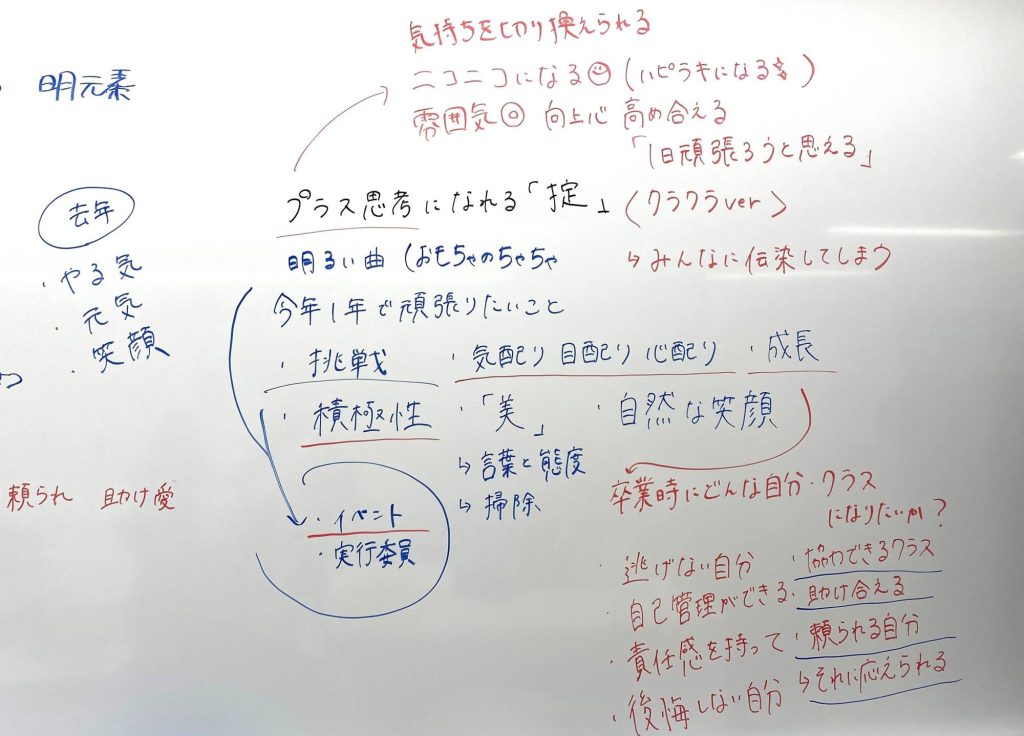 明元素
去年
・やる気
・元気
・笑顔
頼られ 助け愛
気持ちを切り換えられる
ニコニコになる (ハピラキになる)
雰囲気◎ 向上心 高め合える
「1日頑張ろうと思える」
プラス思考になれる「掟」 (クラクラver)
明るい曲 (おもちゃのちゃちゃ
↳みんなに伝染してしまう
今年1年で頑張りたいこと
・挑戦 ・気配り 目配り 心配り ・成長
・積極性 ・「美」 ・自然な笑顔
↳言葉と態度
↳掃除
・イベント
・実行委員
卒業時にどんな自分・クラス
になりたいか?
・逃げない自分 ・協力できるクラス
・自己管理ができる ・助け合える
・責任感を持って ・頼られる自分
・後悔しない自分 ↳それに応えられる